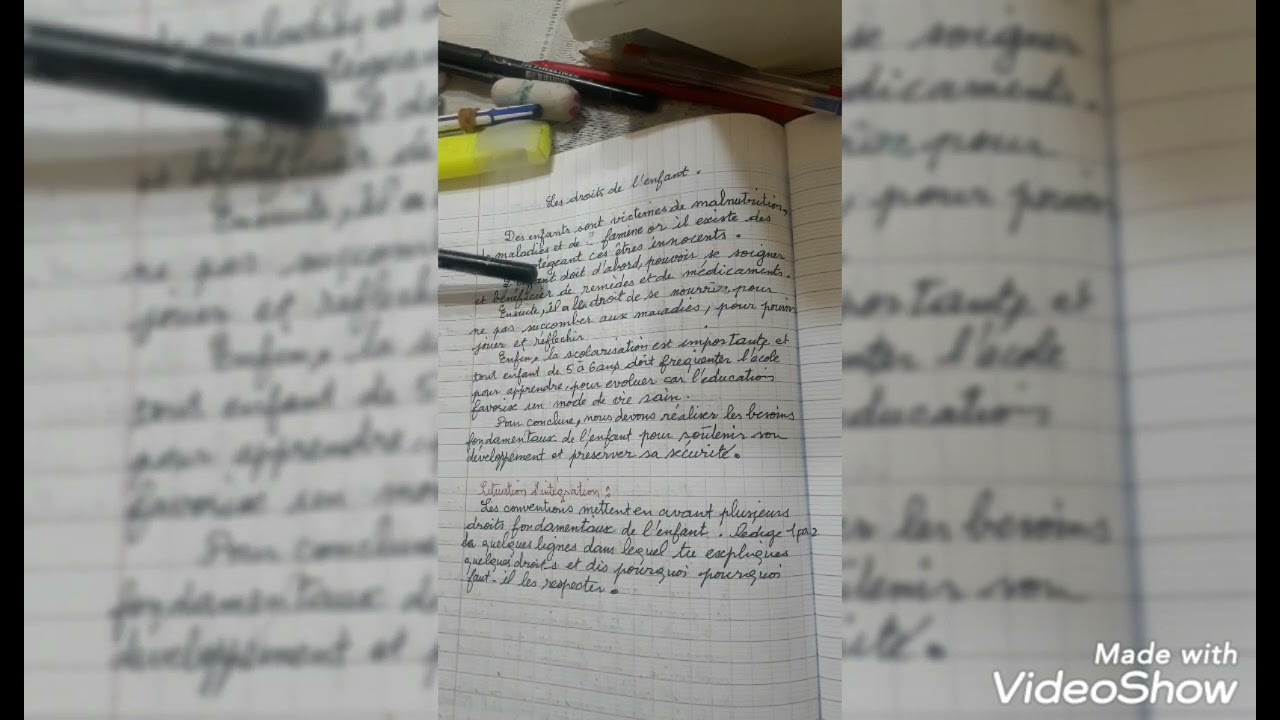 Les droits de l'enfant.
Des enfants sont victimes de malnutrition,
de maladies et de famène or il existe des
tégeant ces êtres innocents.
nt doit d'abord, pouvoir se soigner
et bénéficier de remèdes et de médicaments.
Ensuite, il a le droit de se nourrir, pour
ne pas succomber aux maladies, pour pouvoir
jouer et réflechir.
Enfin, la scolarisation est importante et
tout enfant de 5 à 6 ans doit fréquenter l'école
pour apprendre, pour evoluer car l'education
favorise un mode de vie sain.
Pour conclure, nous devons réaliser les besoins
fondamentaux de l'enfant pour soutenir son
développement et préserver sa sécurité.
Situation d'intégration :
Les conventions mettent en avant plusieurs
droits fondamentaux de l'enfant. Redige
quelques lignes dans lequel tu expliques
quelques droits et dis pourquoi pourquoi
faut-il les respecter.
Made with
VideoShow